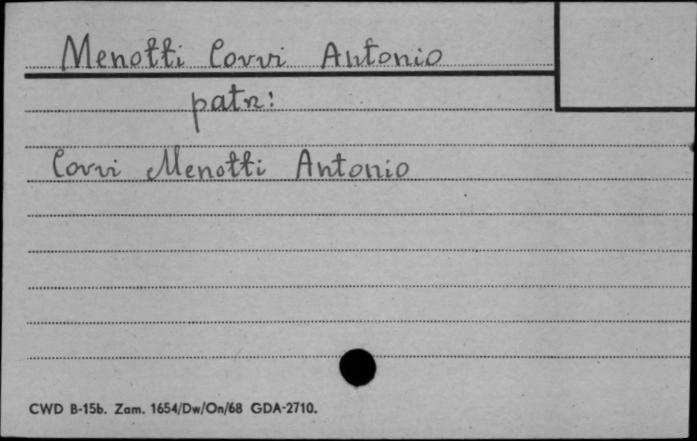 Menotti Corvi Antonio
patrz:
Corvi Menotti Antonio
CWD B-15b. Zam. 1654/Dw/On/68 GDA-2710.